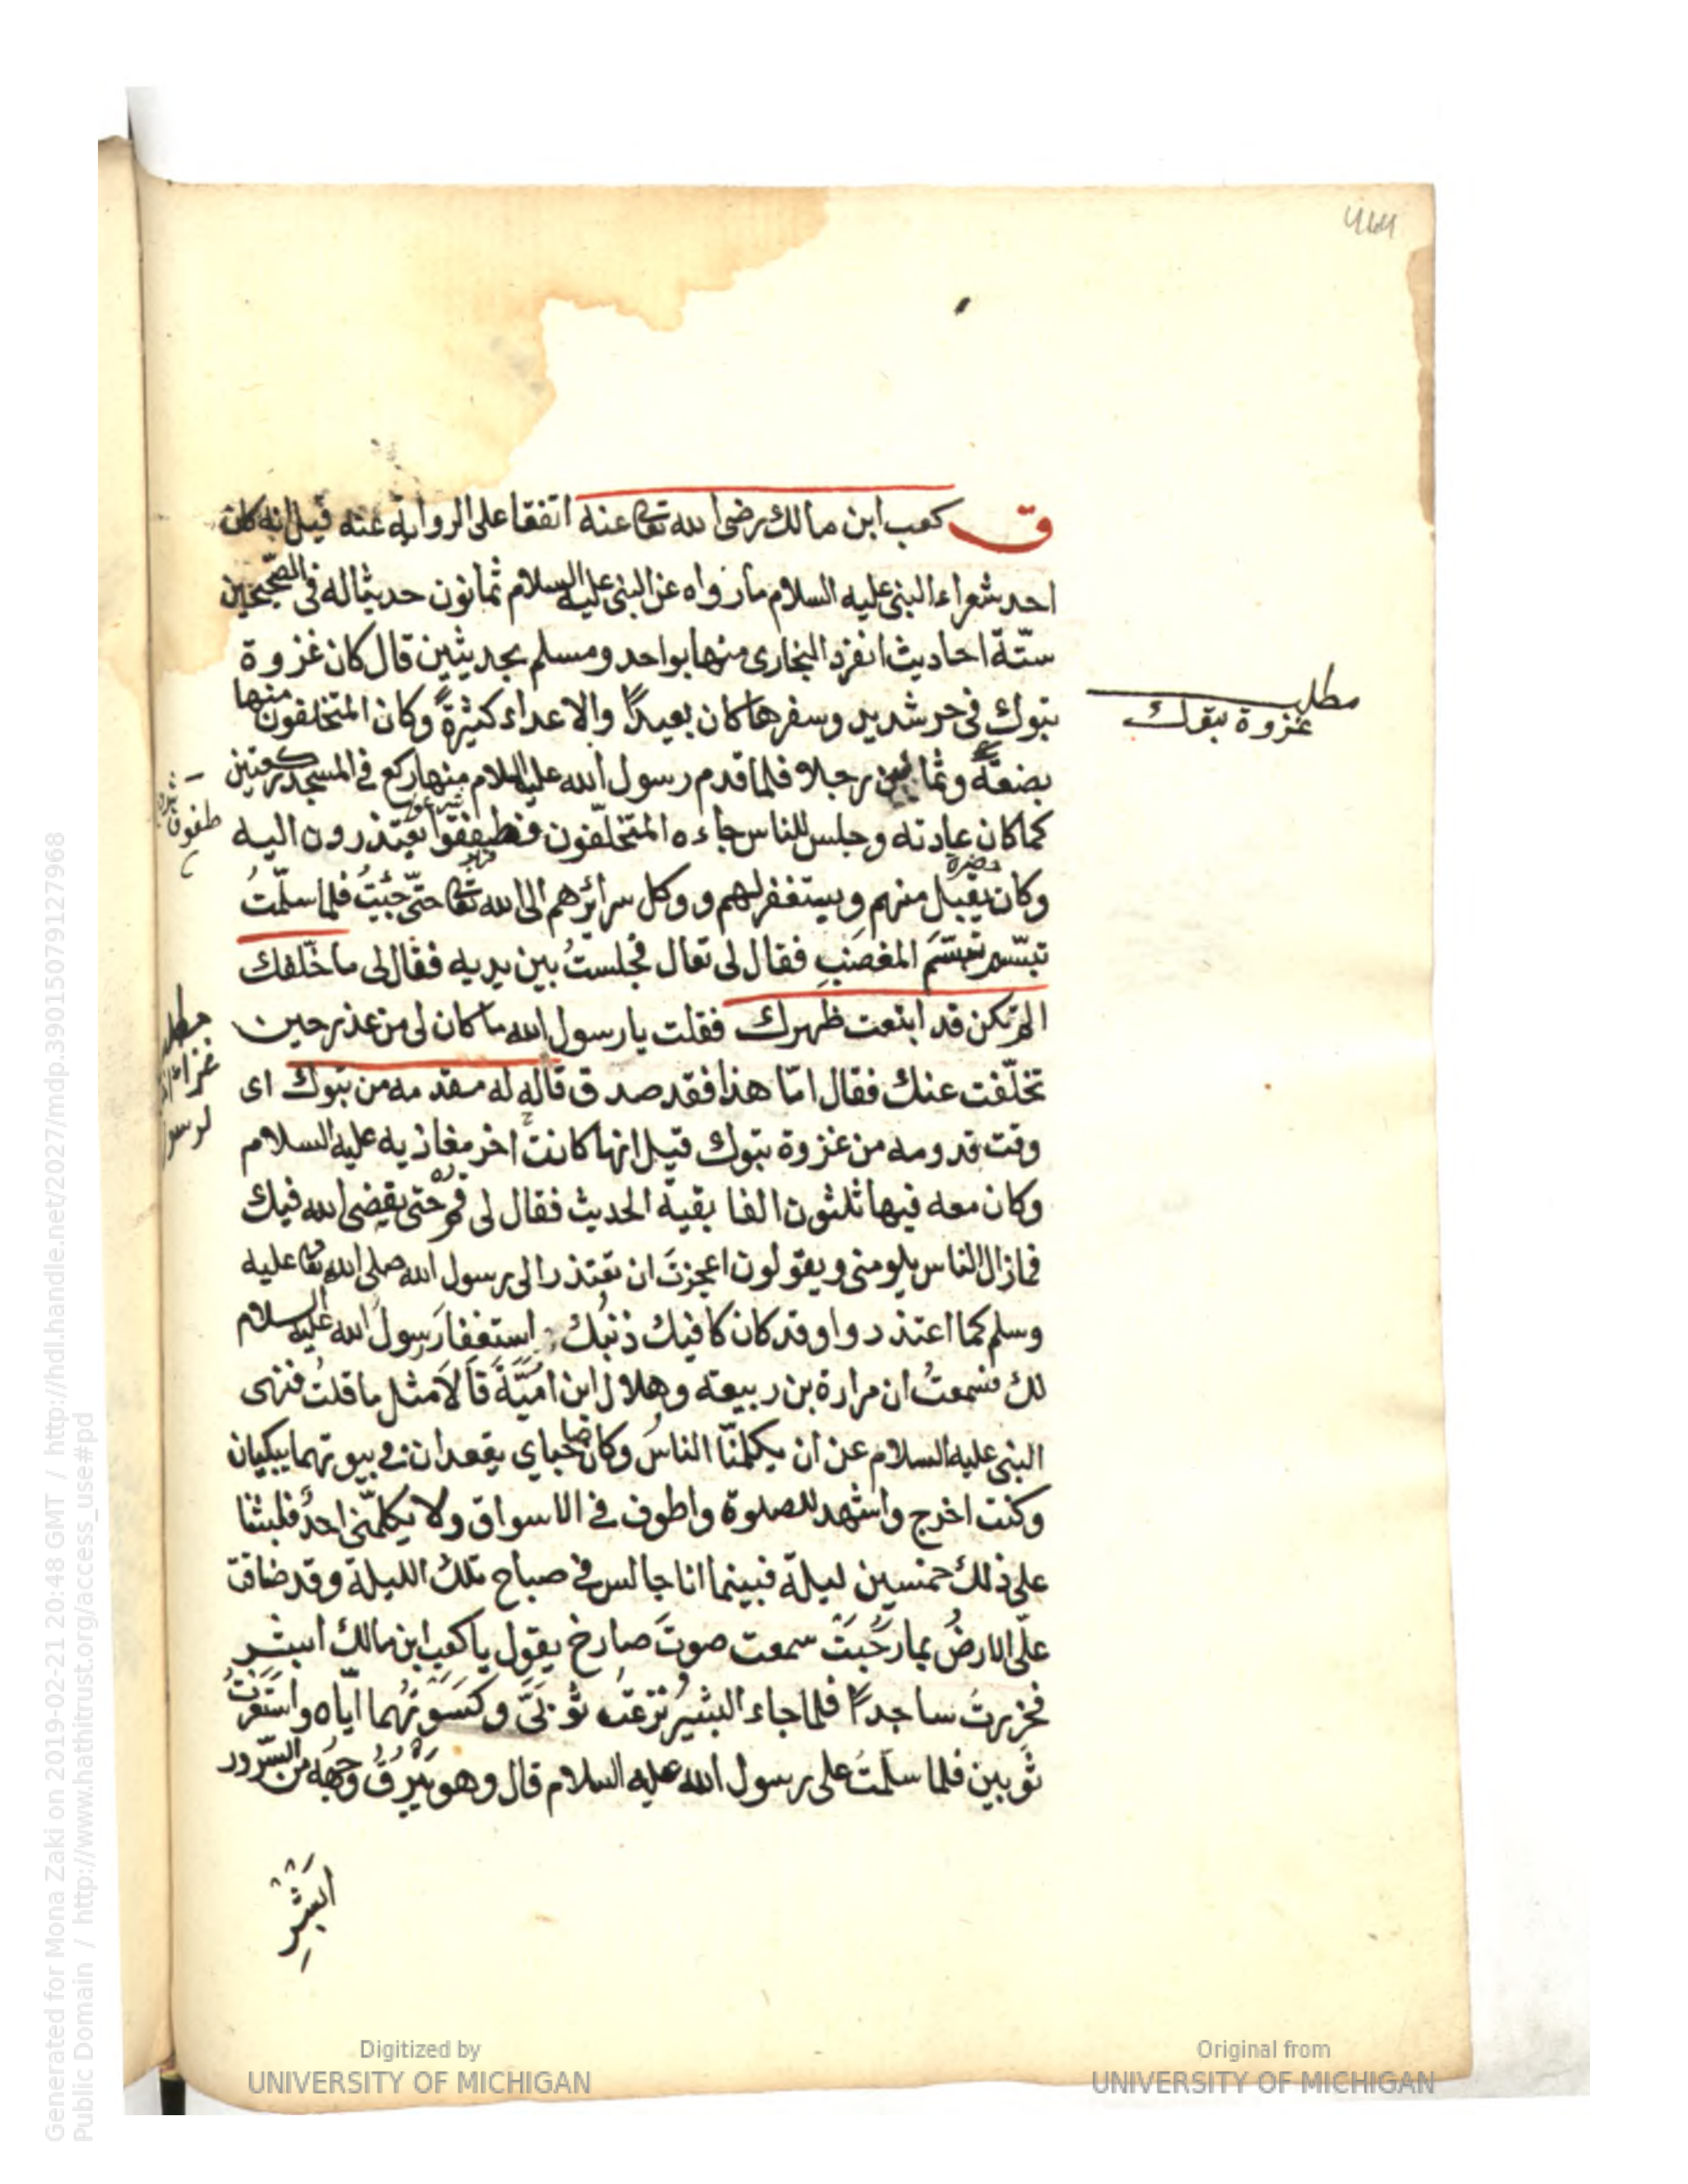 ق كعب ابن مالك رضى الله تعالى عنه اتفقا على الرواية عنه قيل انه كان
احد شعراء النبى عليه السلام مارواه عن النبى عليه السلام ثمانون حديثا له فى الصحيحين
ستّة احاديث انفرد البخارى منها بواحد ومسلم بحديثين قال كان غزوة
تبوك فى حر شديد وسفرها كان بعيدًا والاعداء كثيرةً وكان المتخلفون منها
مطلب
غزوة تبوك
بضعةً وثمانين رجلا فلما قدم رسول الله عليه السلام منها ركع فى المسجد ركعتين
كما كان عادته وجلس للناس جاءه المتخلّفون فطفقوا يعتذرون اليه
وكان يقبل منهم ويستغفر لهم ووكل سرائرهم الى الله تعالى حتّى جئتُ فلما سلّمتُ
تبسّم تبسّمَ المغضَبِ فقال لى تعال فجلستُ بين يديه فقال لى ما خلّفك
الم تكن قد ابتعت ظهرك فقلت يا رسول الله ما كان لى من عذر حين
تخلّفت عنك فقال امّا هذا فقد صدق قاله له مقدمه من تبوك اى
وقت قدومه من غزوة تبوك قيل انها كانت اخر مغازيه عليه السلام
وكان معه فيها ثلثون الفا بقية الحديث فقال لى قم حتى يقضى الله فيك
فمازال الناس يلومنى ويقولون اعجزتَ ان تعتذر الى رسول الله صلى الله تعالى عليه
وسلم كما اعتذروا وقد كان كافيك ذنبُك استغفارَ رسولَ الله عليه السلام
لك فسمعتُ ان مرارة بن ربيعة وهلال ابن اميّةَ قالَا مثل ما قلتُ فنهى
النبى عليه السلام عن ان يكلمنّا الناسُ وكان صاحباى يقعدان فى بيوتهما يبكيان
وكنت اخرج واشهد للصلوة واطوف فى الاسواق ولا يكلمنى احدٌ فلبثنا
على ذلك خمسين ليلة فبينما انا جالس فى صباح تلك الليلة وقد ضاقت
علىّ الارضُ بما رحُبَتْ سمعت صوتَ صارخ يقول يا كعب ابن مالك ابشر
فخررتُ ساجدًا فلما جاء البشيرُ نزعتُ ثوبَىَّ وكَسَوْتُهما ايّاه واستَعَرْتُ
ثوبين فلما سلّمتُ على رسول الله عليه السلام قال وهو يَبْرُقُ وجهُه من السّرور
اَبْشِرْ
Digitized by
UNIVERSITY OF MICHIGAN
Original from
UNIVERSITY OF MICHIGAN
Generated for Mona Zaki on 2019-02-21 20:48 GMT / http://hdl.handle.net/2027/mdp.39015079127968
Public Domain / http://www.hathitrust.org/access_use#pd